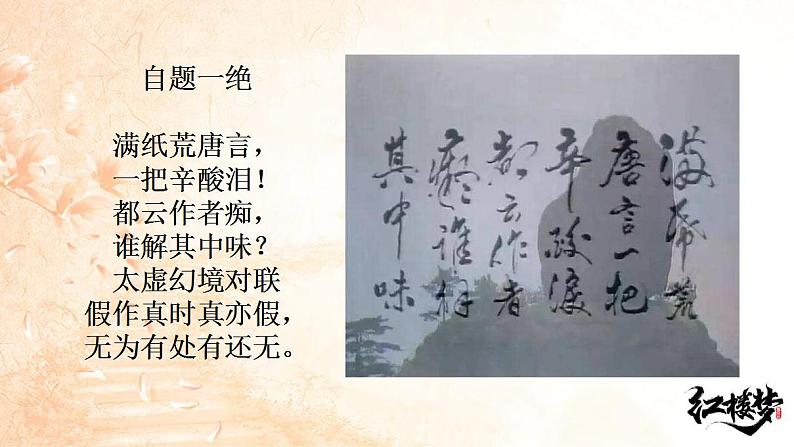 自题一绝
满纸荒唐言，
一把辛酸泪！
都云作者痴，
谁解其中味？
太虚幻境对联
假作真时真亦假，
无为有处有还无。
满纸荒
唐言一把
辛酸泪
都云作者
痴谁解
其中味
红楼梦